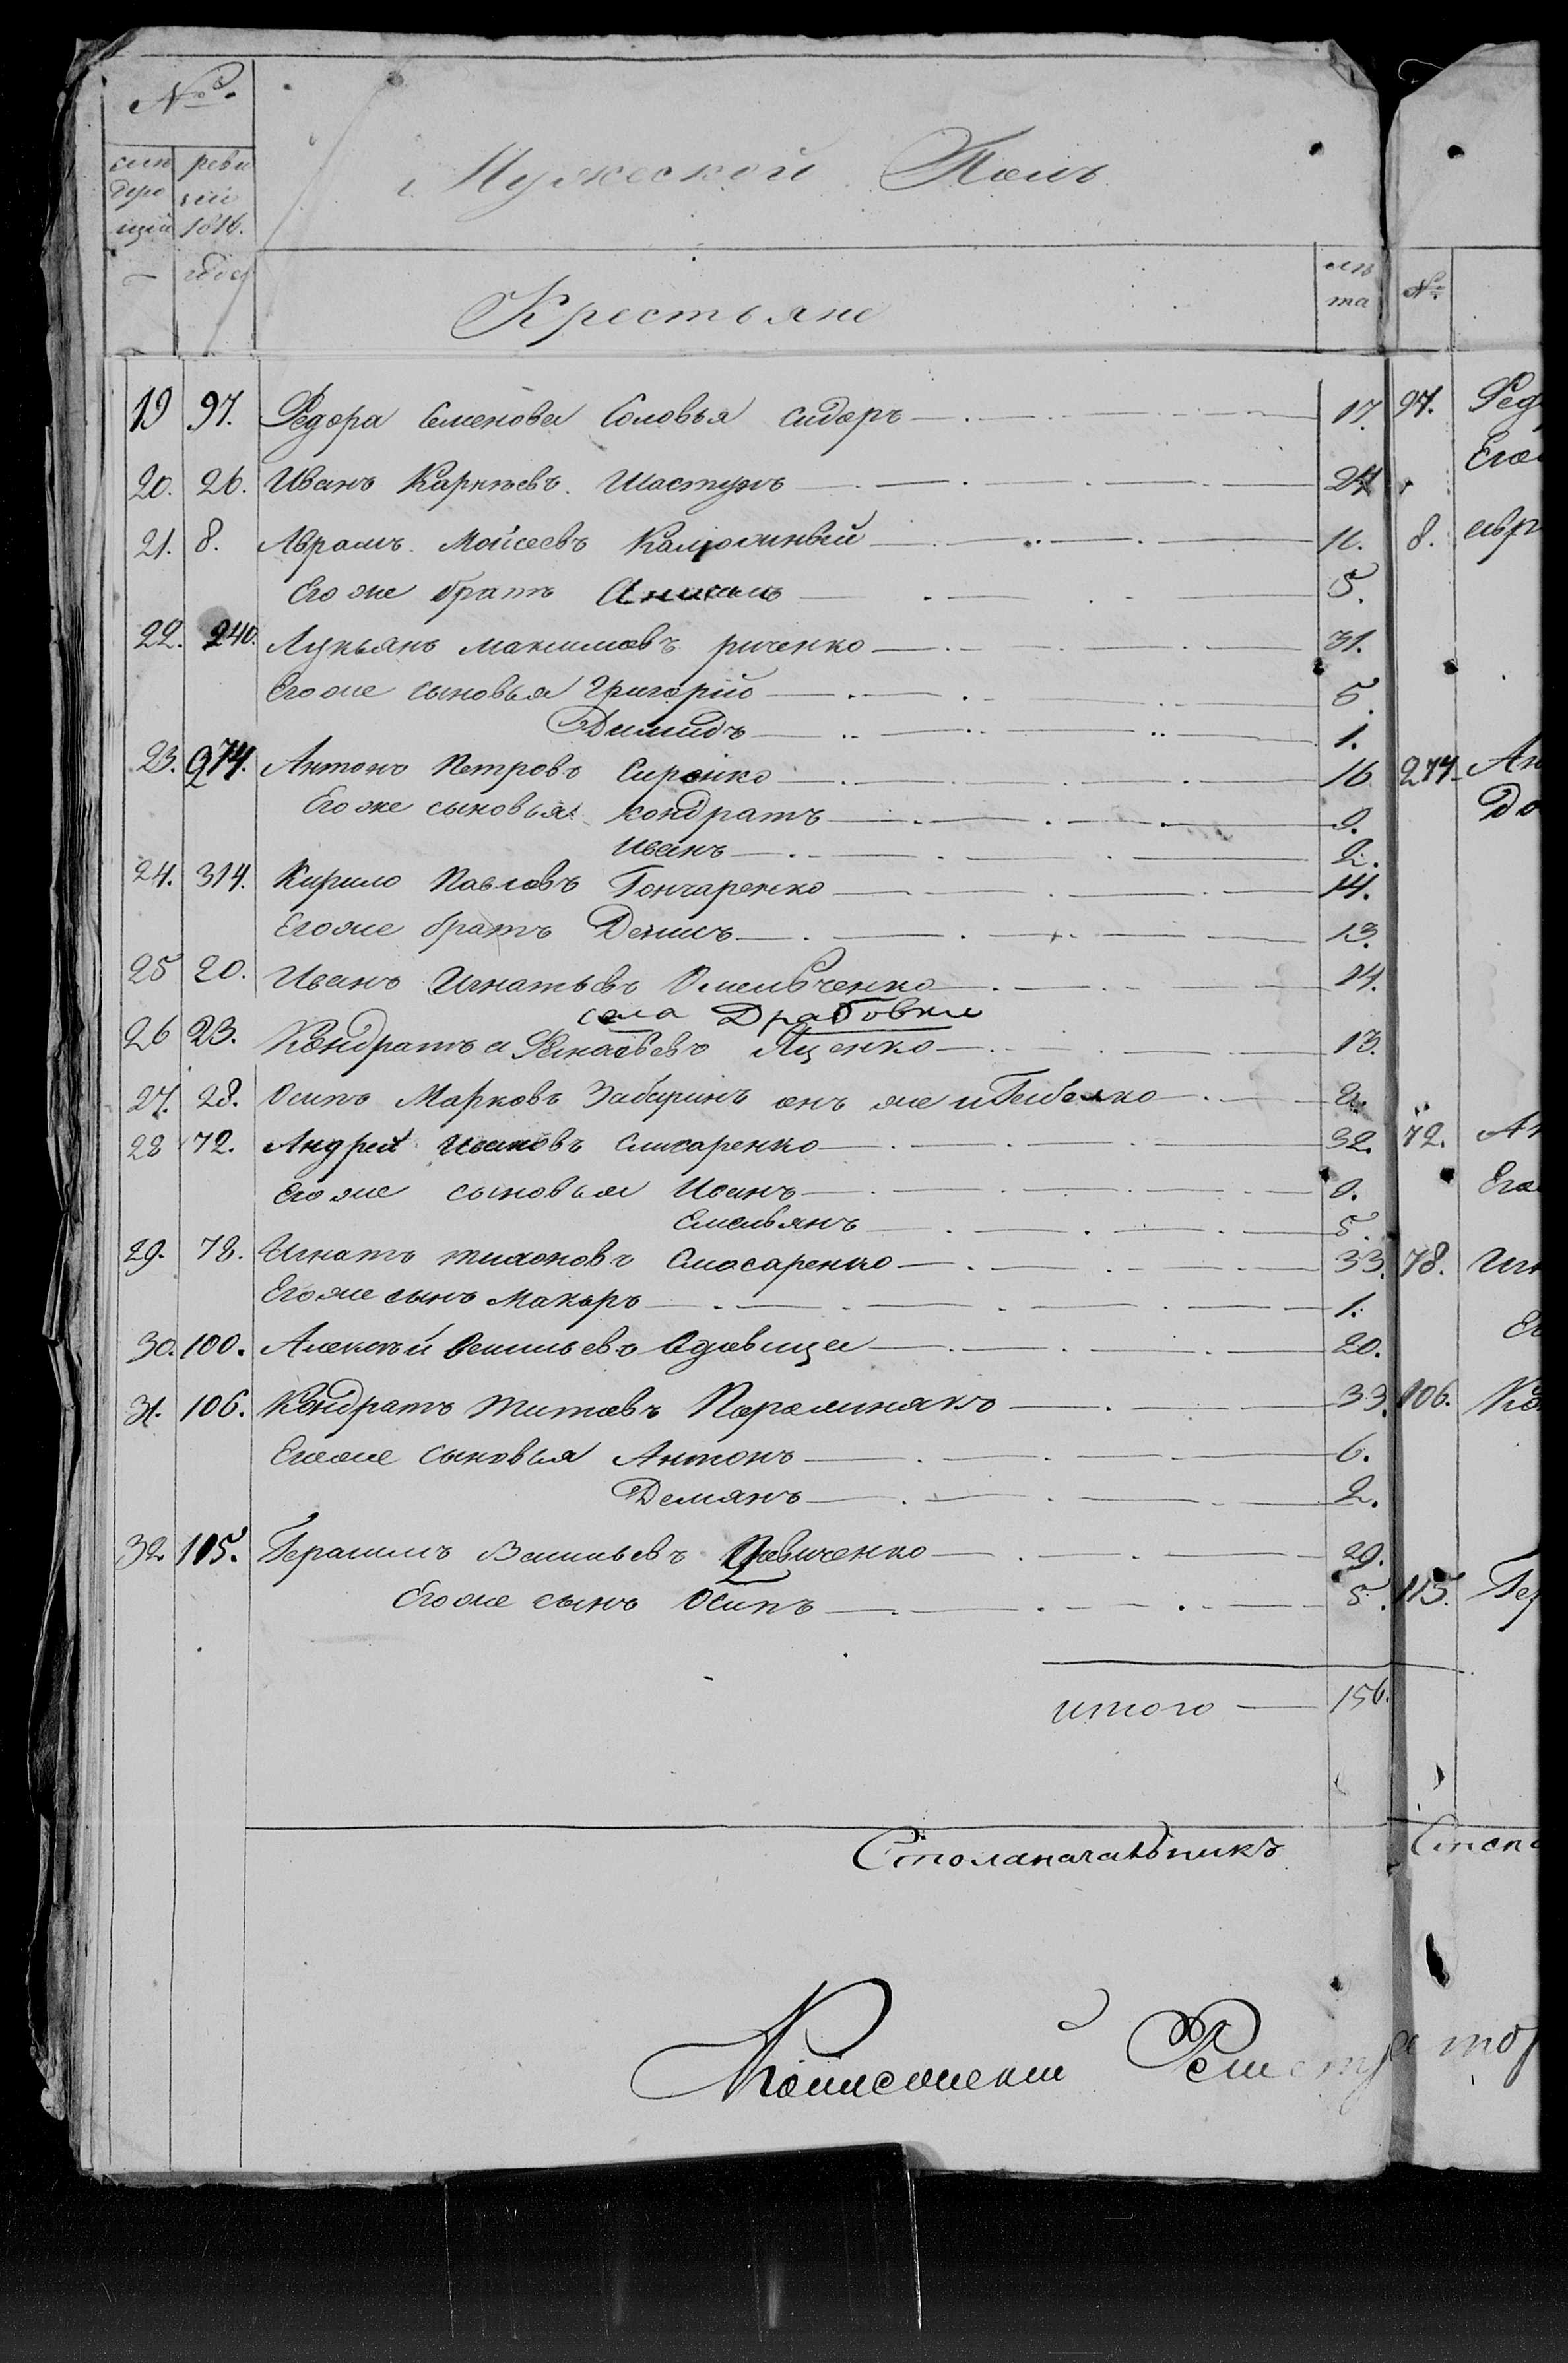 №
реви
зіи
1816.
года
Мужеской Полъ
Крестьяне
лѣ
та
№
19 97. Федора Семенова Соловья Сидоръ 17. 97. Фед
20. 26. Иванъ Карнѣевъ Шастунъ 24 Его
21. 8. Аврамъ Мойсеевъ 11. 8. Авр
Его же братъ Анисимъ 5.
22. 240. Лукьянъ Максимовъ 31.
Его же сыновья Григорій 5.
Димидъ 1.
23. 274. Антонъ Петровъ Сиренко 16 274 Ан
Его же сыновья Кондратъ 9.
Иванъ 2.
24. 314. Кирило Павловъ Гончаренко 14.
Его же братъ Денисъ 13.
25 20. Иванъ Игнатьевъ Омельченко 14.
села Драбовки
26 23. Кондратъ Яценко 13.
27. 28. Осипъ Марковъ онъ же и 2.
28 72. Андрей Ивановъ Слисаренко 32. 72. Ан
Его же сыновья Иванъ 9. Его
Емельянъ 5.
29. 78. Игнатъ Тихоновъ Слюсаренко 33. 78. Игн
Его же сынъ Макаръ 1.
30. 100. Алексѣй Васильевъ 20.
31. 106. Кондратъ Титовъ 33. 106. Ко
Его же сыновья Антонъ 6.
Демянъ 2.
32 115. Герасимъ Васильевъ 29.
Его же сынъ Осипъ 5. 115. Гер
итого 156.
Столаначальникъ Стол